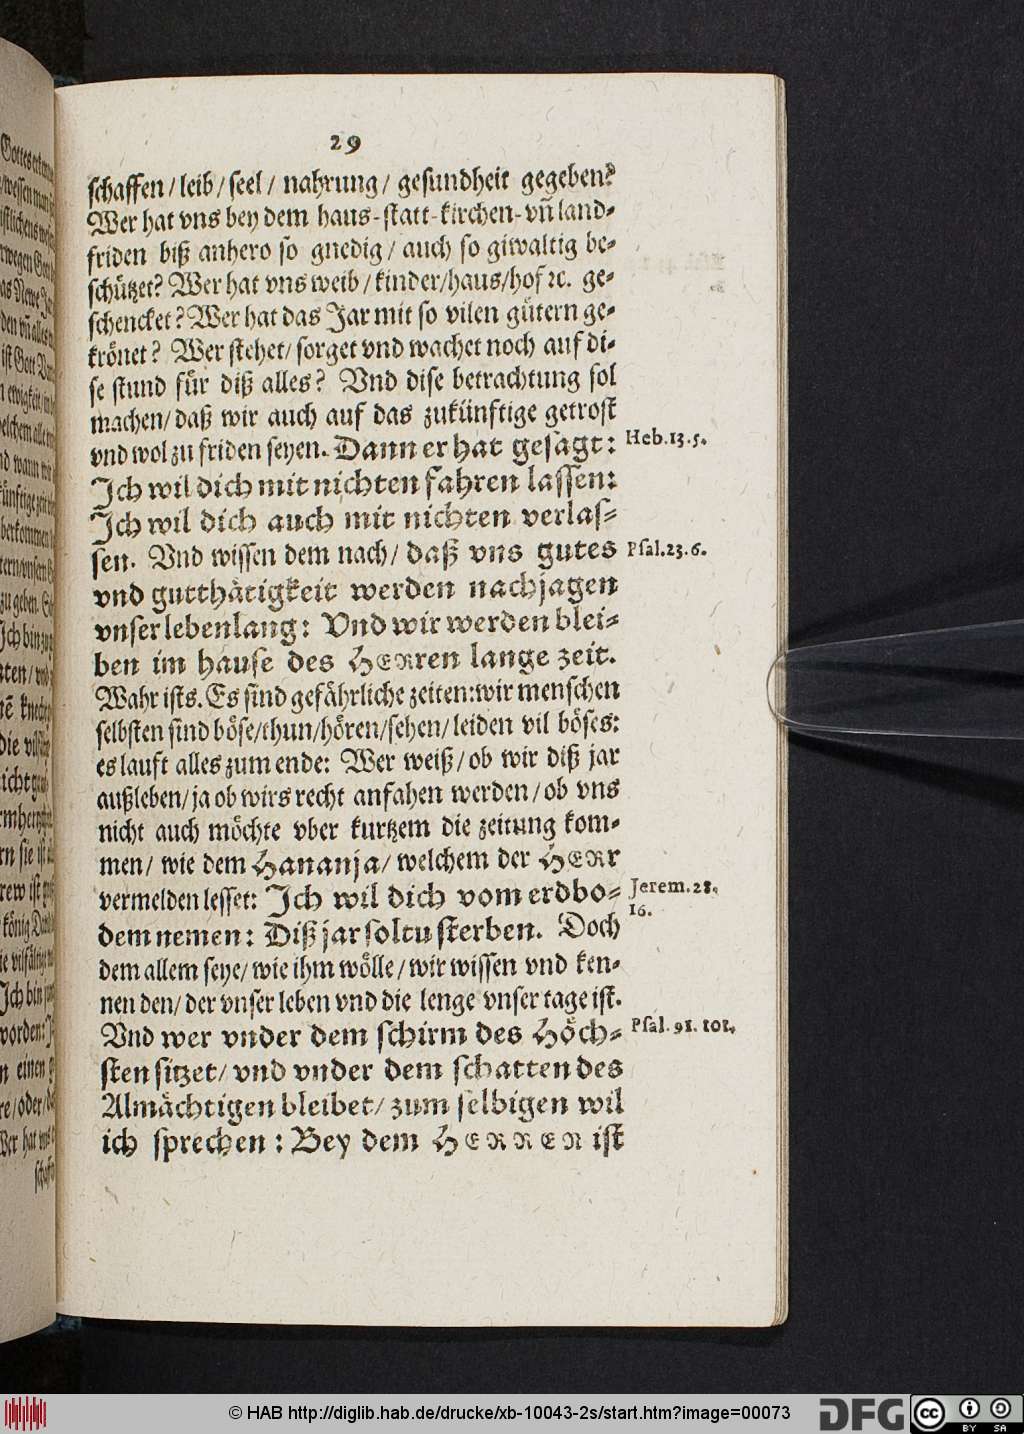 29
schaffen / leib / seel / nahrung / gesundheit gegeben?
Wer hat vns bey dem haus-statt-kirchen-vn̄ land-
friden biß anhero so gnedig / auch so giwaltig be-
schützet? Wer hat vns weib / kinder/haus/hof ꝛc. ge-
schencket? Wer hat das Jar mit so vilen gütern ge-
krönet? Wer stehet/ sorget vnd wachet noch auf di-
se stund für diß alles? Vnd dise betrachtung sol
machen/ daß wir auch auf das zukünftige getrost
vnd wol zu friden seyen. Dann er hat gesagt:
Heb.13.5.
Ich wil dich mit nichten fahren lassen:
Ich wil dich auch mit nichten verlas-
sen. Vnd wissen dem nach/ daß vns gutes
Psal.23.6.
vnd gutthätigkeit werden nachjagen
vnser lebenlang: Vnd wir werden blei-
ben im hause des HERren lange zeit.
Wahr ists. Es sind gefährliche zeiten: wir menschen
selbsten sind böse/thun/hören/sehen/ leiden vil böses:
es lauft alles zum ende: Wer weiß/ ob wir diß jar
außleben/ ja ob wirs recht anfahen werden/ ob vns
nicht auch möchte vber kurtzem die zeitung kom-
men/ wie dem Hananja/ welchem der HERr
vermelden lesset: Ich wil dich vom erdbo-
Jerem.28.
16.
dem nemen: Diß jar soltu sterben. Doch
dem allem seye/ wie ihm wölle/ wir wissen vnd ken-
nen den/ der vnser leben vnd die lenge vnser tage ist.
Vnd wer vnder dem schirm des Höch-
Psal. 91. 101.
sten sitzet/ vnd vnder dem schatten des
Almächtigen bleibet/ zum selbigen wil
ich sprechen: Bey dem HERREN ist
© HAB http://diglib.hab.de/drucke/xb-10043-2s/start.htm?image=00073
DFG
cc
BY SA